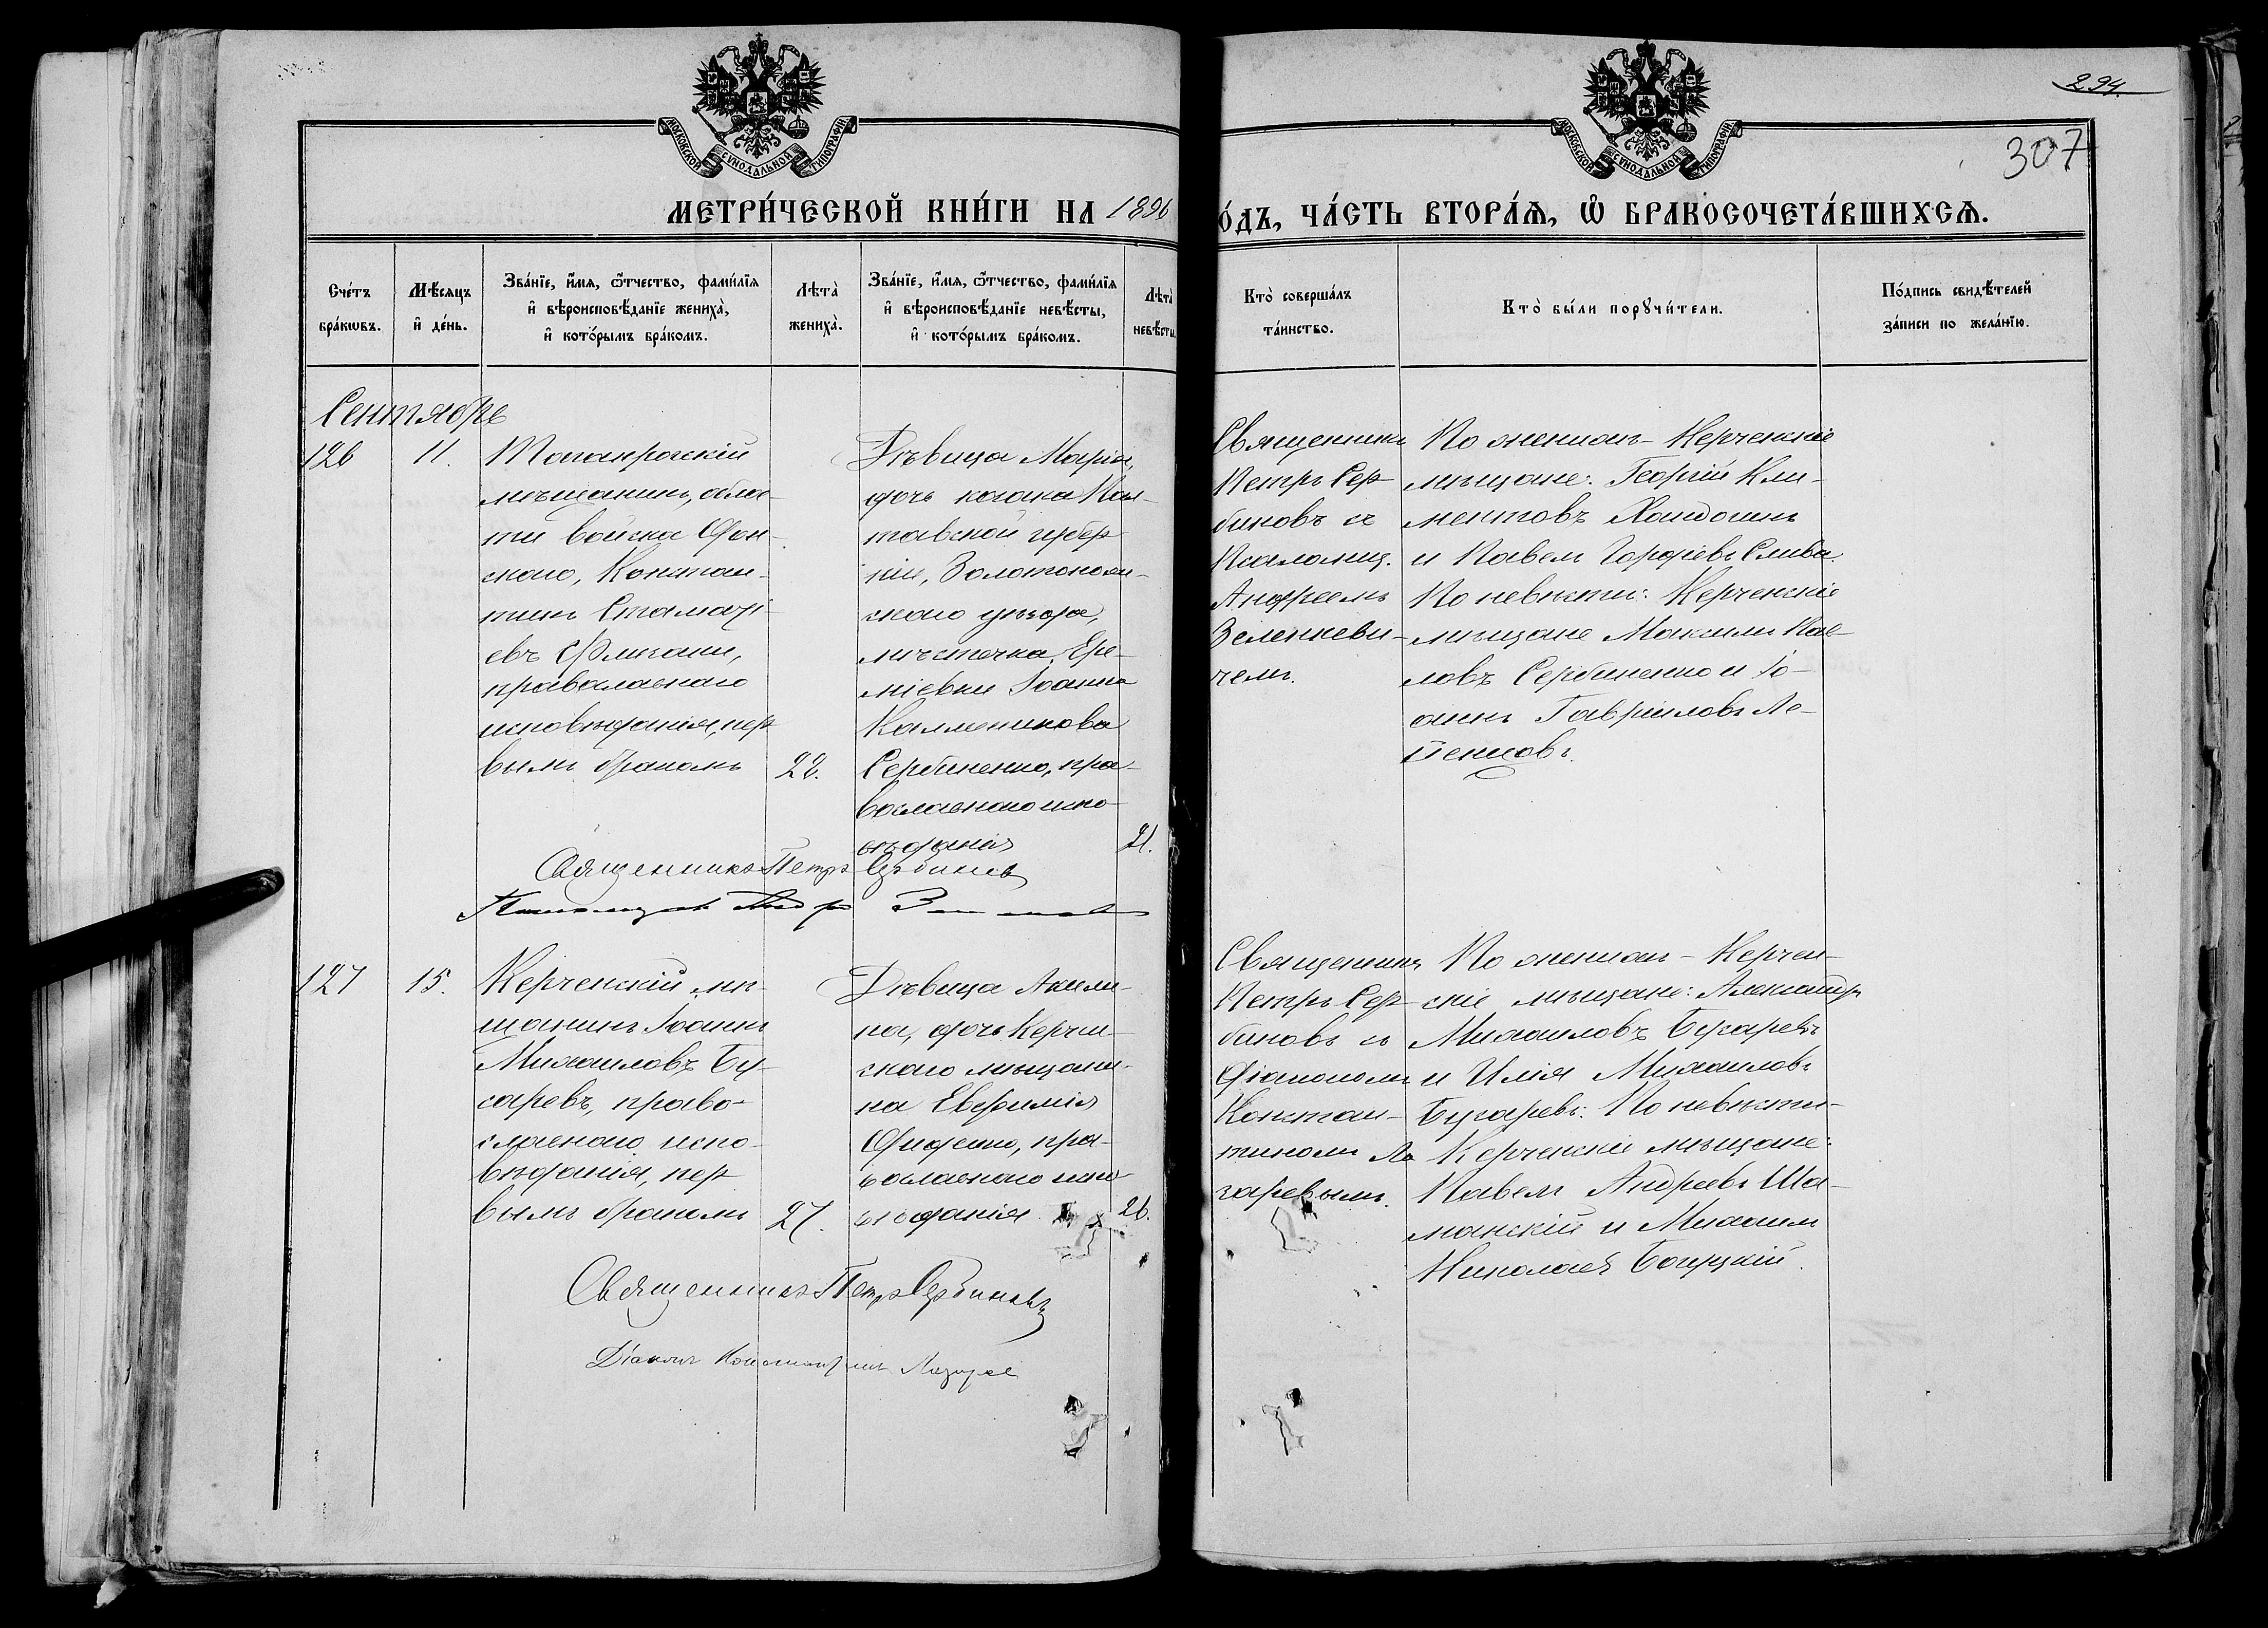 294.
307
МОСКОВСКОЙ СУНОДАЛЬНОЙ ТИПОГРАФІИ
МОСКОВСКОЙ СУНОДАЛЬНОЙ ТИПОГРАФІИ
МЕТРИ́ЧЕСКОЙ КНИ́ГИ НА 1896
О́ДЪ, ЧА́СТЬ ВТОРА́Я, Ѽ БРАКОСОЧЕТА́ВШИХСѦ.
Сче́тъ
бра́кѡвъ.
Мѣ́сяцъ
и҆ де́нь.
Зва́нїе, и҆́мя, ѻ҆́тчество, фами́лїя
и҆ вѣроисповѣ́данїе жениха̀,
и҆ кото́рымъ бра́комъ.
Лѣта̀
жениха̀.
Зва́нїе, и҆́мя, ѻ҆́тчество, фами́лїя
и҆ вѣроисповѣ́данїе невѣ́сты,
и҆ кото́рымъ бра́комъ.
Лѣта̀
невѣ́сты
Кто̀ соверша́лъ
та́инство.
Кто̀ бы́ли порꙋчи́тели.
По́дпись свидѣ́телей
за́писи по жела́нїю.
Сентябрь
126
11.
Таганрогскій
мѣщанинъ, обла-
сти войска Дон-
скаго, Констан-
тинъ Стаматі-
евъ
православнаго
исповѣданія, пер
вымъ бракомъ
22.
Дѣвица Марія,
дочь козака Пол-
тавской губер
ніи, Золотонош-
скаго уѣзда,
мѣстечка Ере-
міевки Іоанна
Калленикова
Сербиненко, пра-
вославнаго испо-
вѣданія
21.
Священникъ
Петръ Сер-
биновъ съ
Псаломщ.
Андреемъ
Зеленкеви-
чемъ.
По женихѣ - Керченскіе
мѣщане: Георгій Кли-
ментовъ
и Павелъ Гордіевъ Слива.
По невѣстѣ: Керченскіе
мѣщане Максимъ Пав-
ловъ Сербиненко и Іо-
аннъ Гавріиловъ Ле-
Священникъ Петръ Сербиновъ
127
15.
Керченскій мѣ-
щанинъ Іоаннъ
Михаиловъ Бу-
гаревъ, право-
славнаго испо-
вѣданія, пер
вымъ бракомъ
27.
Дѣвица Акили-
на, дочь Керчен-
скаго мѣщани-
на Евфимія
Диденко, пра-
вославнаго испо
вѣданія
26.
Священникъ
Петръ Сер-
биновъ съ
Діакономъ
Констан-
тиномъ Ла
заревымъ.
По женихѣ - Керчен-
скіе мѣщане: Александръ
Михаиловъ Бугаревъ
и Илія Михаиловъ
Бугаревъ: По невѣстѣ-
Керченскіе мѣщане:
Павелъ Андреевъ Ша-
манскій и Михаилъ
Николаевъ
Священникъ Петръ Сербиновъ
Діаконъ Константинъ Лазарев